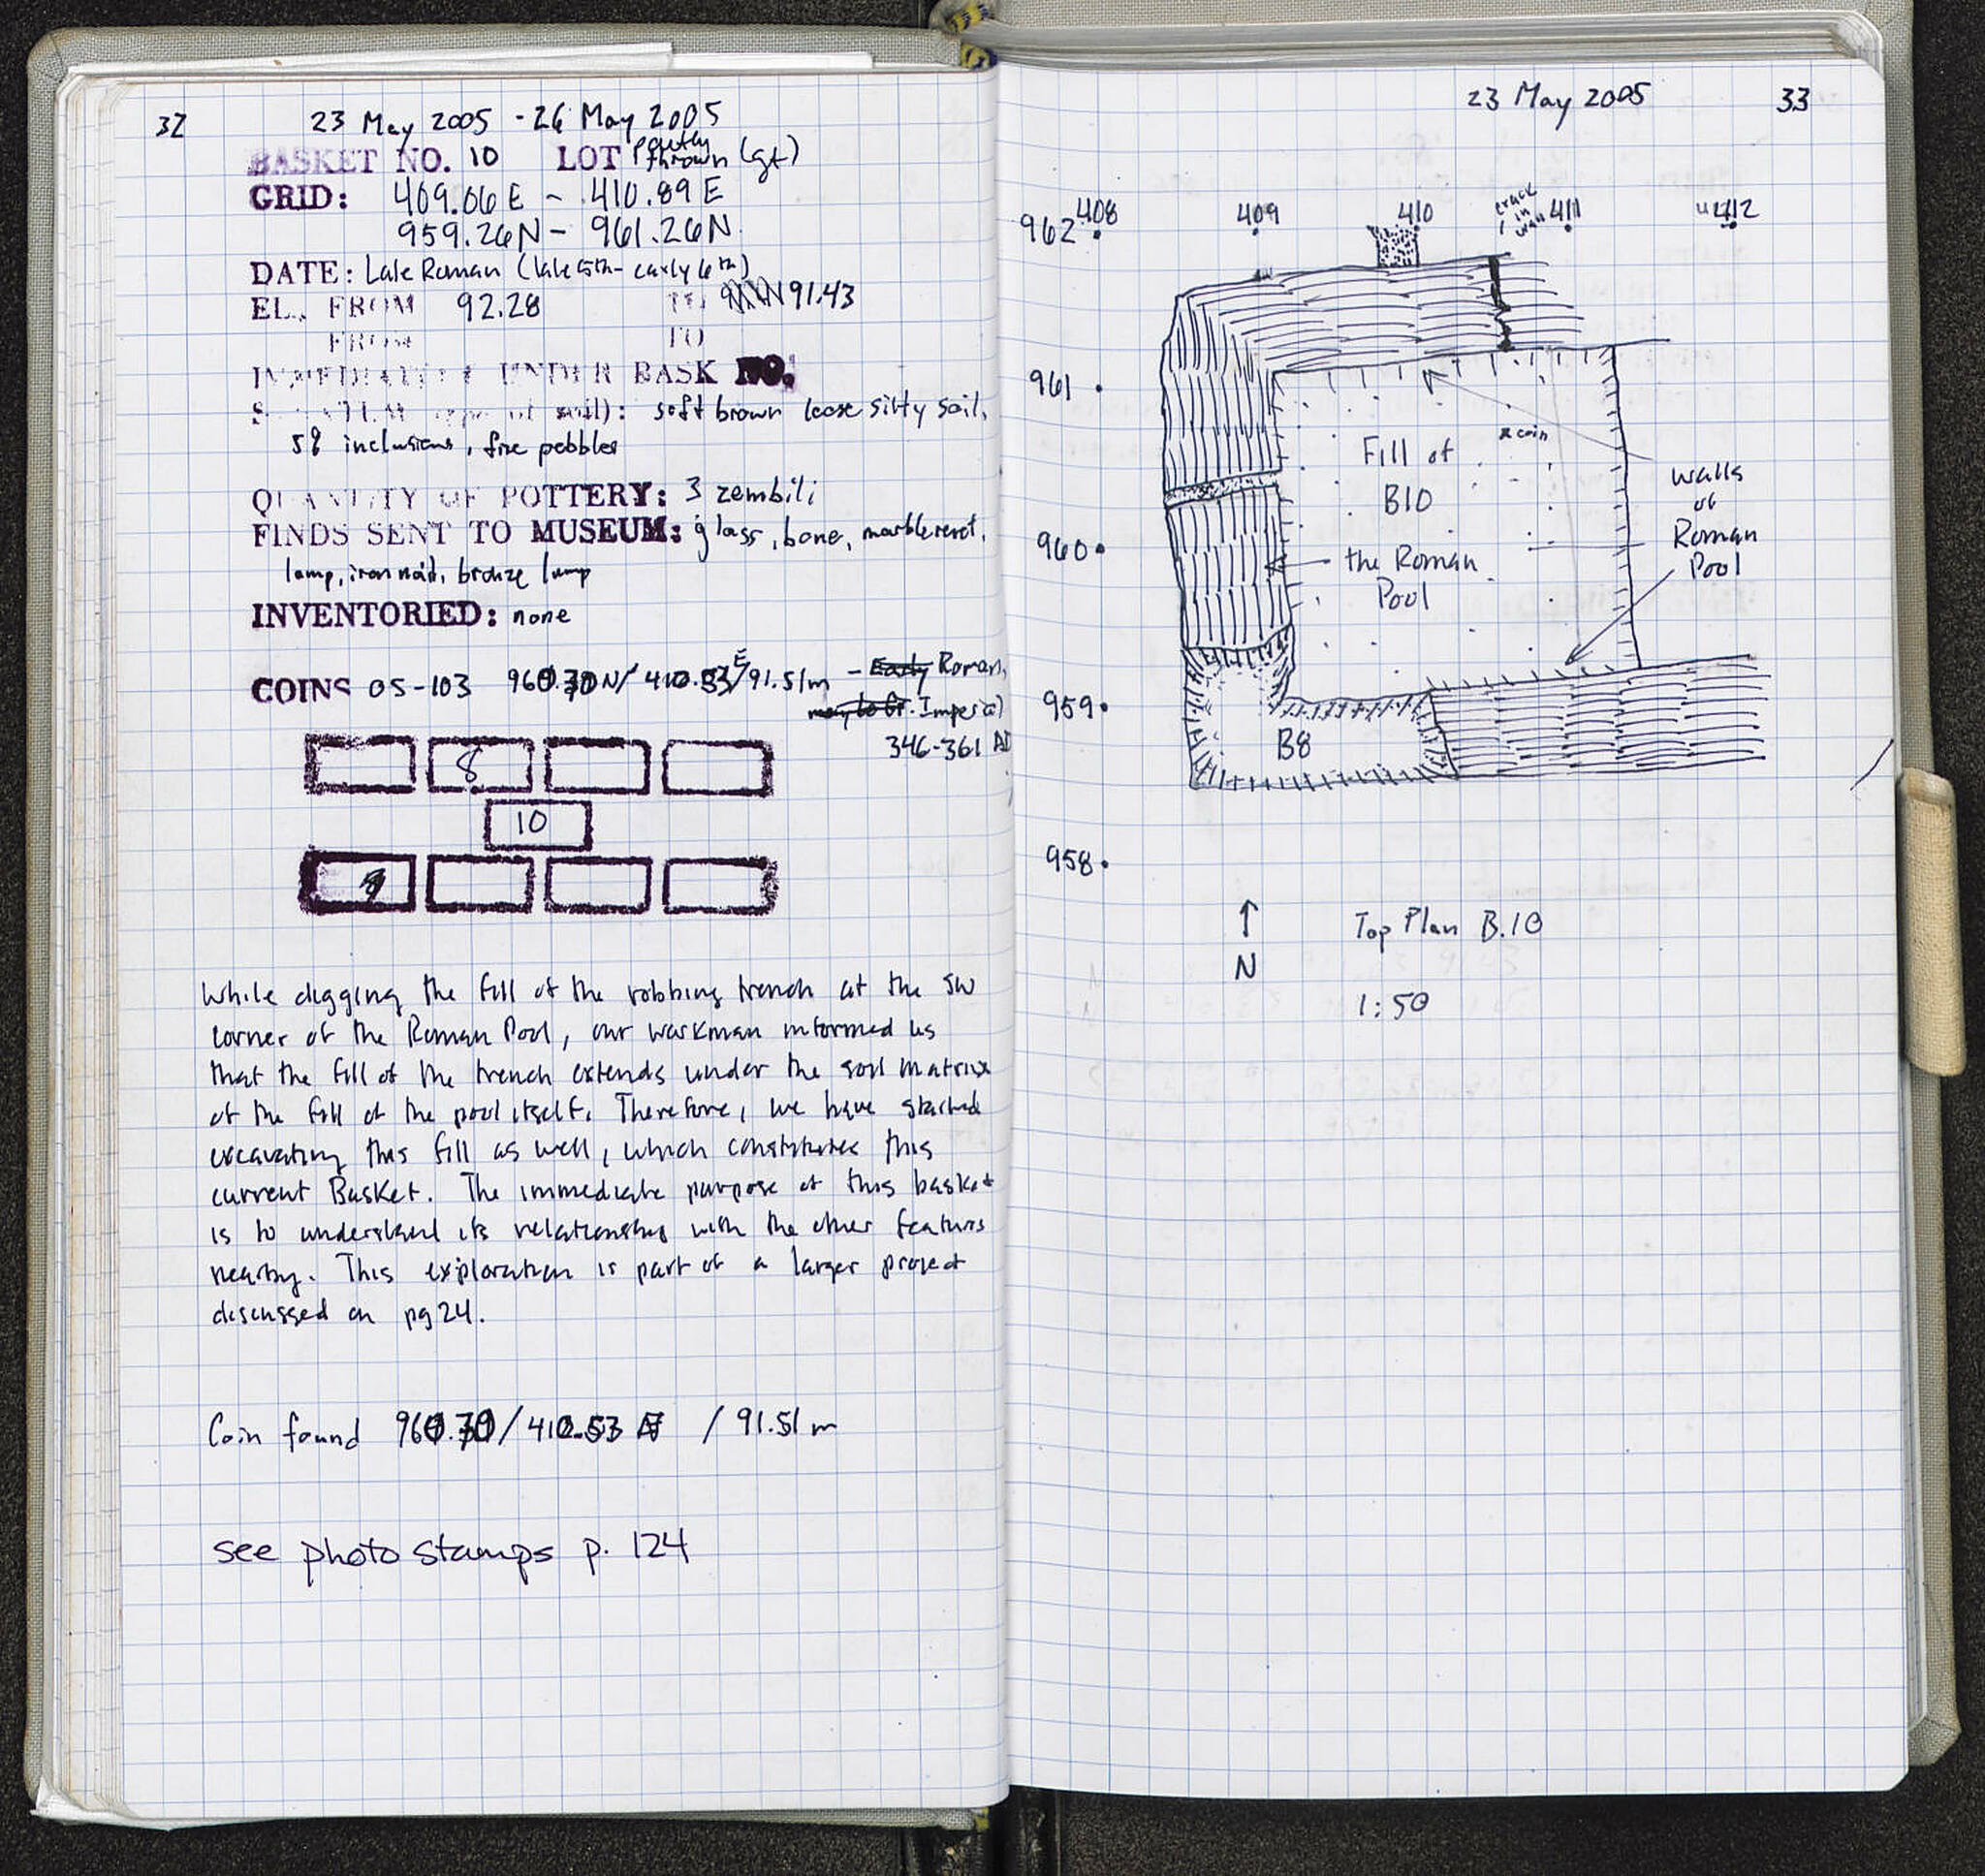 32
23 May 2005 - 26 May 2005
BASKET NO. 10 LOT partly thrown (gt)
GRID: 409.06 E - 410.89 E
959.26N - 961.26N
DATE: Late Roman (late 5th - early 6th)
EL. FROM 92.28 TO 91.43
FROM TO
IMMEDIATELY UNDER BASK NO.
soil): soft brown loose silty soil,
5% inclusions, fine pebbles
QUANTITY OF POTTERY: 3 zembili
FINDS SENT TO MUSEUM: glass, bone, marble revet,
lamp, iron nail, bronze lump
INVENTORIED: none
COINS 05-103 960.30N/ 410.53E/91.51m - Early Roman,
may be Gr. Imperial
346-361 AD
8
10
9
While digging the fill of the robbing trench at the SW
corner of the Roman Pool, our workman informed us
that the fill of the trench extends under the soil matrix
of the fill of the pool itself. Therefore, we have started
excavating this fill as well, which constitutes this
current Basket. The immediate purpose of this basket
is to understand its relationship with the other features
nearby. This exploration is part of a larger project
discussed on pg 24.
Coin found 960.30/410.53 E / 91.51 m
see photo stamps p. 124
23 May 2005 33
962 408 409 410 411 412
crack
in
wall
961
x coin
Fill of
B10
walls
of
Roman
Pool
960
the Roman
Pool
959
B8
958
↑
N
Top Plan B.10
1:50